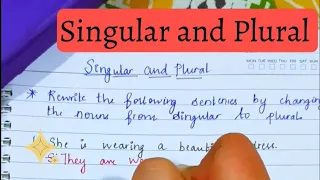 Singular and Plural
MON TUE WED THU FRI SAT SUN
Singular and Plural
* Rewrite the following sentences by changing
the nouns from singular to plural.
She is wearing a beautiful dress.
They are